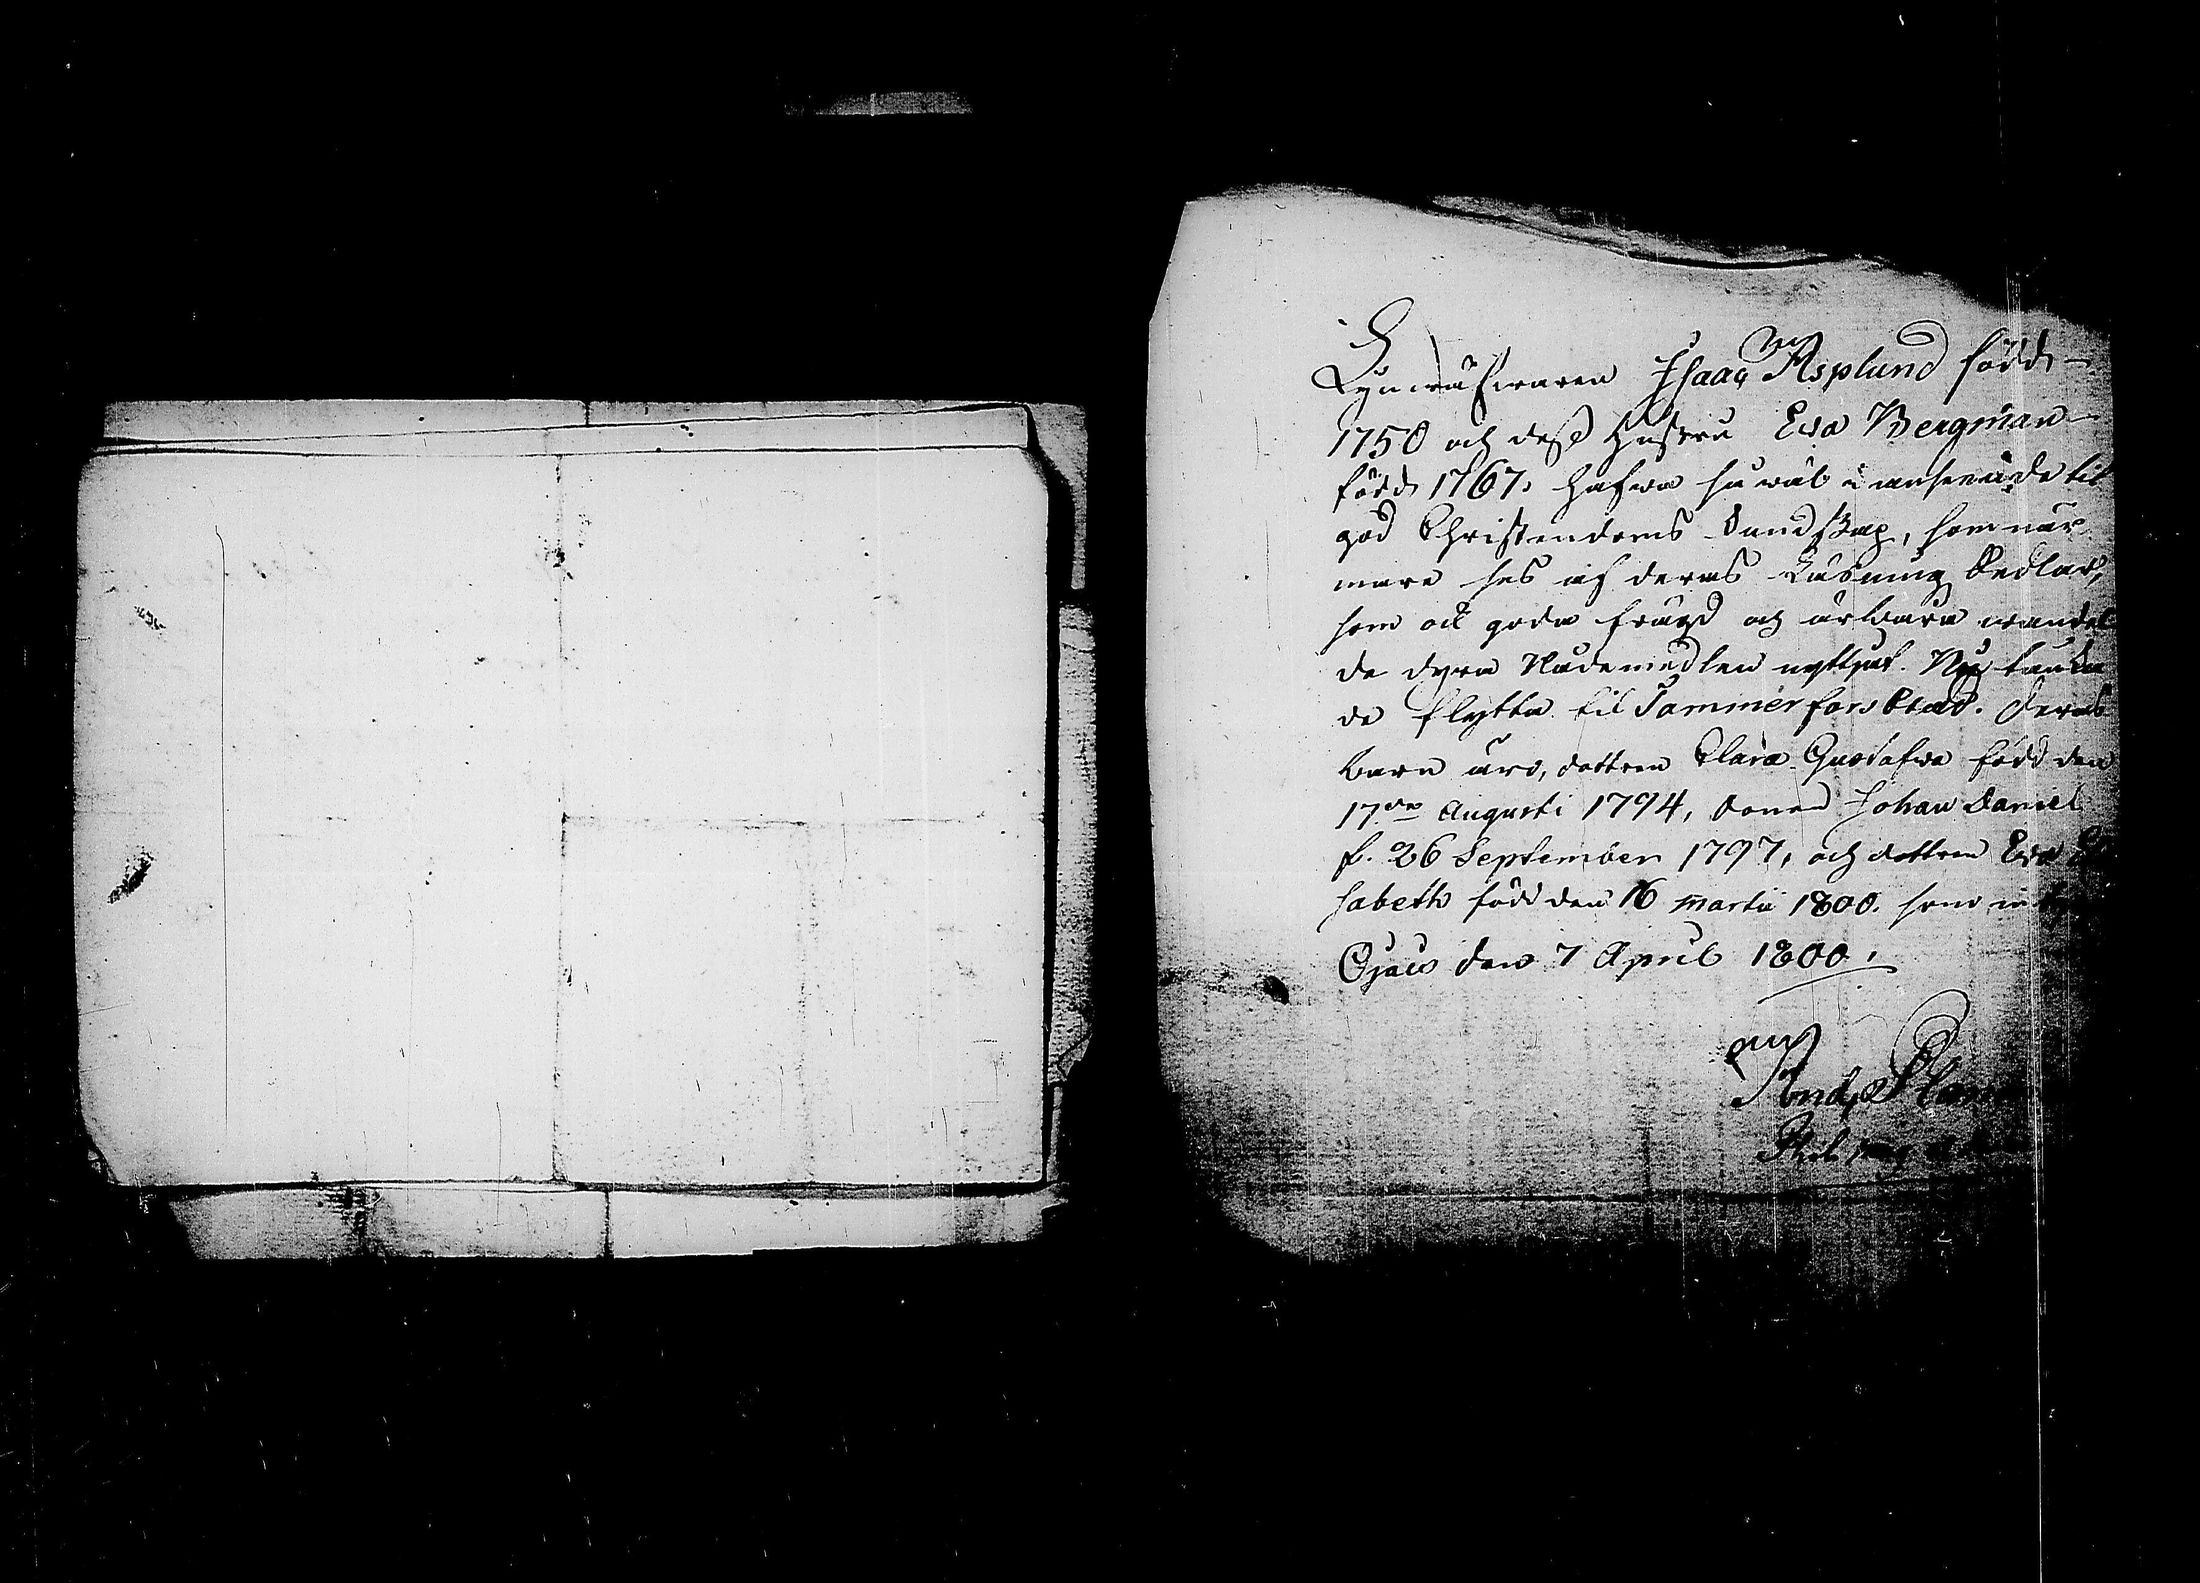 Lynnäfvaren Isaac Asplund född
1750 och dess Hustru Eva Bergman
född 1767, hafva så väl i anseende til
god Christendoms kundskap, som när-
mare ses af deras Läsning Sedlar,
som ock goda frägd och ärbara wandel
de dyra Nådemedlen nyttjat. Nu tänka
de flytta til Tammerfors Stad. Deras
barn äro, dottren Clara Gustafva född den
17de Augusti 1794, Sonen Johan Daniel
f. 26 September 1797, och dottren Eva Eli
sabeth född den 16 Martii 1800. som
Ojais den 7 April 1800.
And. Planman